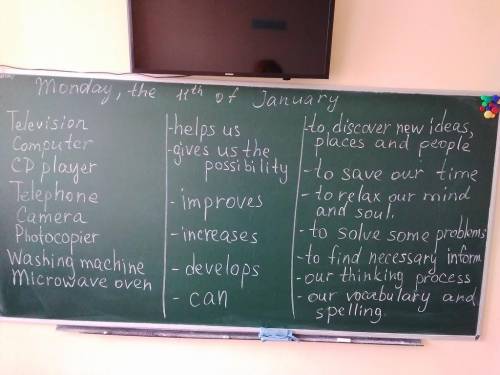 Monday, the 11th of January
Television
Computer
CD player
Telephone
Camera
Photocopier
Washing machine
Microwave oven
-helps us
-gives us the
possibility
- improves
-increases
- develops
- can
-to discover new ideas,
places and people
- to save our time
- to relax our mind
and soul.
- to solve some problems
-to find necessary inform
- our thinking process
- our vocabulary and
spelling